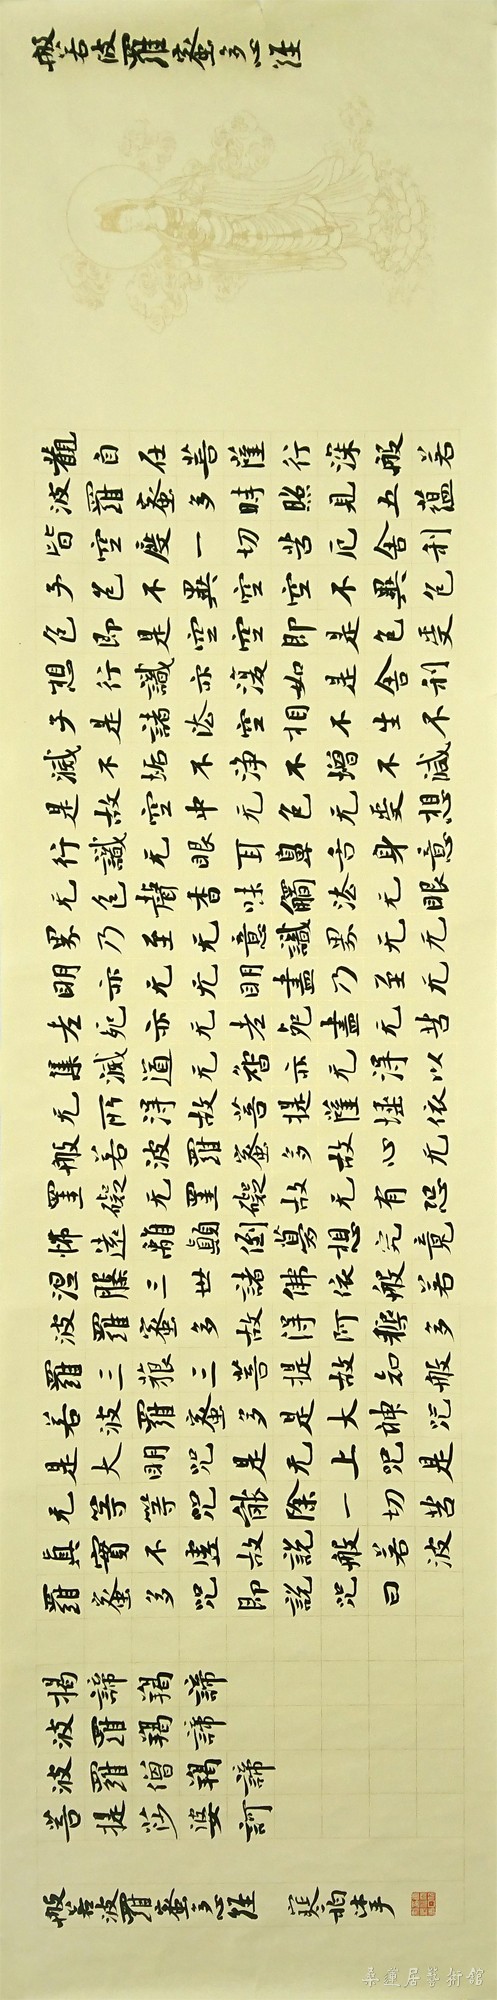 般若波羅蜜多心経
觀自在菩薩行深般若
波羅蜜多時照見五蘊
皆空度一切苦厄舍利
子色不異空空不異色
色即是空空即是色受
想行識亦復如是舍利
子是諸法空相不生不
滅不垢不淨不增不減
是故空中无色无受想
行識无眼耳鼻舌身意
无色聲香味觸法无眼
界乃至无意識界无无
明亦无无明盡乃至无
老死亦无老死盡无苦
集滅道无智亦无得以
无所得故菩提薩埵依
般若波羅蜜多故心无
罣礙无罣礙故无有恐
怖遠離顛倒夢想究竟
涅槃三世諸佛依般若
波羅蜜多故得阿耨多
羅三藐三菩提故知般
若波羅蜜多是大神咒
是大明咒是无上咒是
无等等咒能除一切苦
真實不虛故說般若波
羅蜜多咒即說咒曰
揭諦羯諦
波羅羯諦
波羅僧羯諦
菩提莎婆訶
般若波羅蜜多心経 寒柏沐手
桑蓮居藝術館